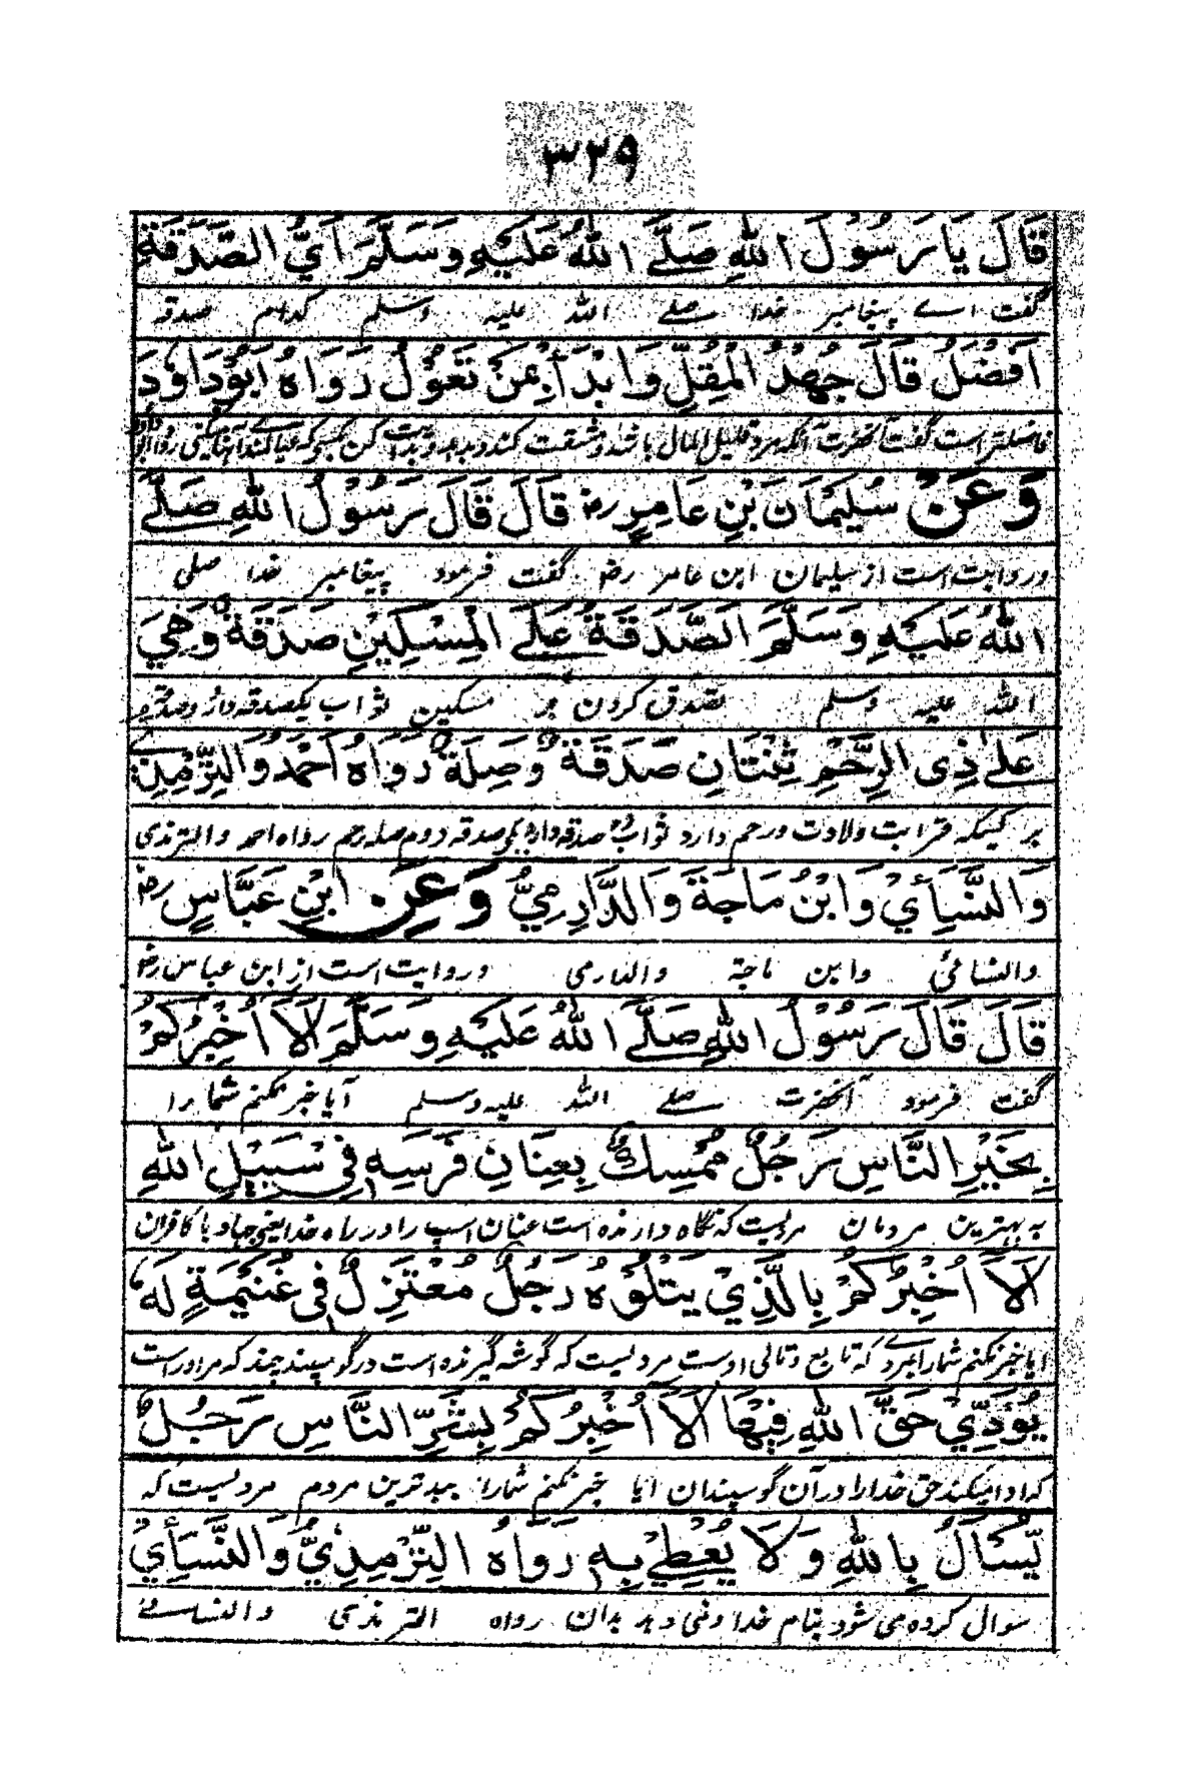 ۳۲۹
قَالَ يَا رَسُوْلَ اللهِ صَلَّے اللهُ عَلَيْهِ وَسَلَّمَ اَيُّ الصَّدَقَةِ
گفت اے پیغامبر خدا صلے اللہ علیہ وسلم کدام صدقہ
اَفْضَلُ قَالَ جُهْدُ الْمُقِلِّ وَابْدَأْ بِمَنْ تَعُوْلُ رَوَاهُ اَبُوْدَاوٗدَ
فاضلتر است گفت آنحضرت آنکہ مرد قلیل المال باشد و مشقت کند و بدہد و بدایت کن
وَعَنْ سُلَيْمَانَ بْنِ عَامِرٍ رض قَالَ قَالَ رَسُوْلُ اللهِ صَلَّے
و روایت است از سلیمان ابن عامر رض گفت فرمود پیغامبر خدا صلی
اللهُ عَلَيْهِ وَسَلَّمَ الصَّدَقَةُ عَلَے الْمِسْكِيْنِ صَدَقَةٌ وَهِيَ
اللہ علیہ وسلم تصدق کردن بر مسکین ثواب یکصدقہ دارد و صدقہ
عَلٰے ذِی الرَّحْمِ ثِنْتَانِ صَدَقَةٌ وَصِلَةٌ رَوَاهُ اَحْمَدُ وَالتِّرْمِذِيُّ
بر کسیکہ قرابت ولادت و رحم دارد ثواب دو صدقہ دارد یکی صدقہ دوم صلہ رحم رواہ احمد والترمذی
وَالنَّسَأئِيْ وَابْنُ مَاجَةَ وَالدَّارِمِيُّ وَعَنِ ابْنِ عَبَّاسٍ رض
والنسائی وابن ماجة والدارمی و روایت است از ابن عباس رض
قَالَ قَالَ رَسُوْلُ اللهِ صَلَّے اللهُ عَلَيْهِ وَسَلَّمَ اَلَا اُخْبِرُكُمْ
گفت فرمود آنحضرت صلے اللہ علیہ وسلم آیا خبر نکنم شما را
بِخَيْرِ النَّاسِ رَجُلٌ مُمْسِكٌ بِعِنَانِ فَرَسِهٖ فِيْ سَبِيْلِ اللهِ
بہ بہترین مردمان مردیست کہ نگاہ دارندہ است عنان اسپ را در راہ خدا یعنی جہاد با کافران
اَلَا اُخْبِرُكُمْ بِالَّذِيْ يَتْلُوْهُ رَجُلٌ مُعْتَزِلٌ فِيْ غُنَيْمَةٍ لَهٗ
ایا خبر نکنم شما را بمردے کہ تابع و تالی اوست مردیست کہ گوشہ گیرندہ است در گوسپند چند کہ مر او راست
يُؤَدِّيْ حَقَّ اللهِ فِيْهَا اَلَا اُخْبِرُكُمْ بِشَرِّ النَّاسِ رَجُلٌ
کہ ادا میکند حق خدا را در آن گوسپندان ایا خبر نکنم شما را ببدترین مردم مردیست کہ
يُسْأَلُ بِاللهِ وَلَا يُعْطِيْ بِهٖ رَوَاهُ التِّرْمِذِيُّ وَالنَّسَأئِيُ
سوال کردہ می شود بنام خدا و نمی دہد بدان رواہ الترمذی والنسائے